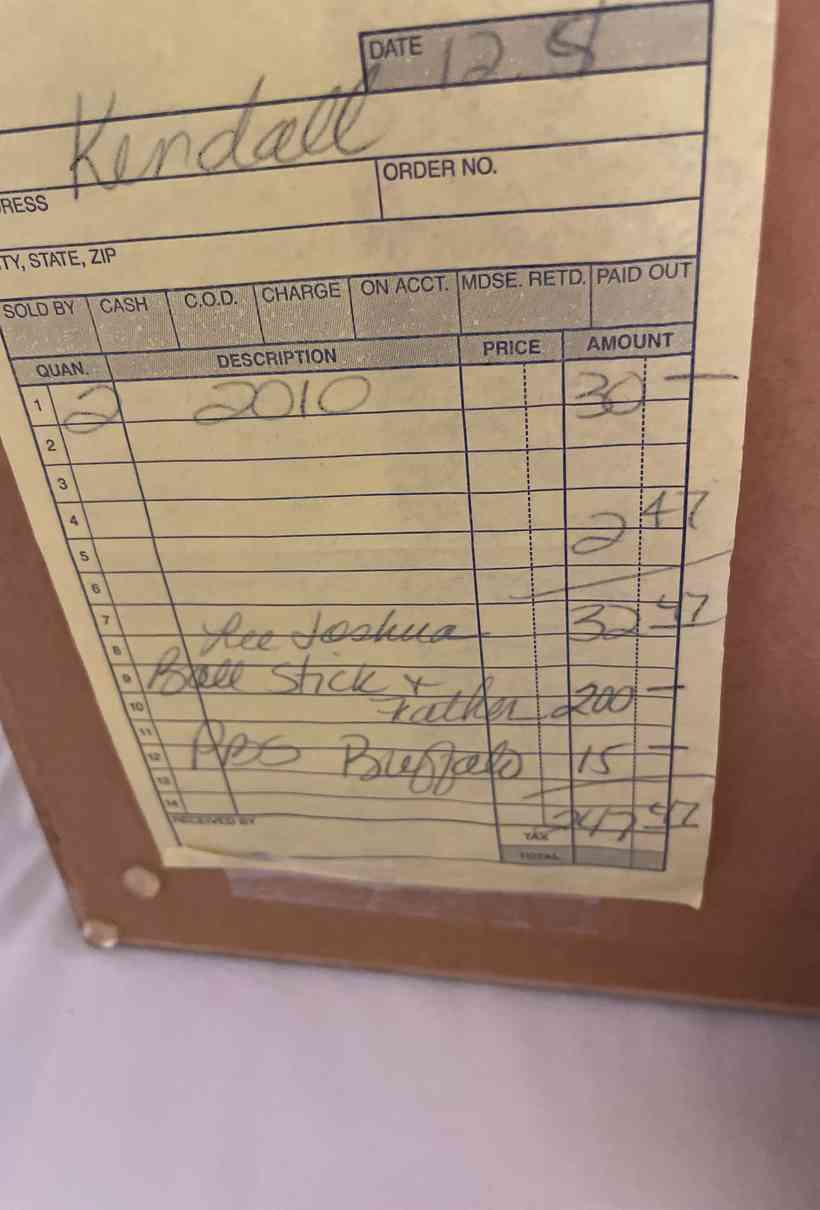 DATE 12.8
Kendall
RESS ORDER NO.
TY, STATE, ZIP
SOLD BY CASH C.O.D. CHARGE ON ACCT. MDSE. RETD. PAID OUT
QUAN. DESCRIPTION PRICE AMOUNT
1 2 2010 30 —
2
3
4 2 47
5
6
7 Lee Joshua 32 47
8
9 Ball Stick +
10 Father 200 —
11
12 Buffalo 15 —
13
14 247 47
RECEIVED BY TAX
TOTAL